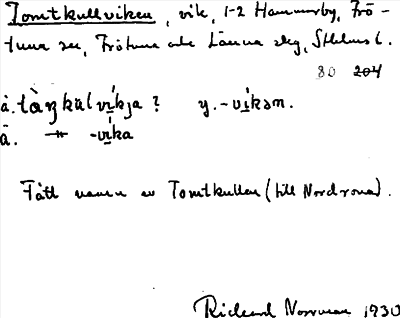 Tomtkullviken, vik, 1-2 Hammarby, Frö-
tuna sn, Frötuna och Länna skg, Sthlms l.
80 204
ä. tàŋkulvikja? y. -víkən.
ä. -vika
Fått namn av Tomtkullen (till Nordrona).
Rickard Norrman 1930